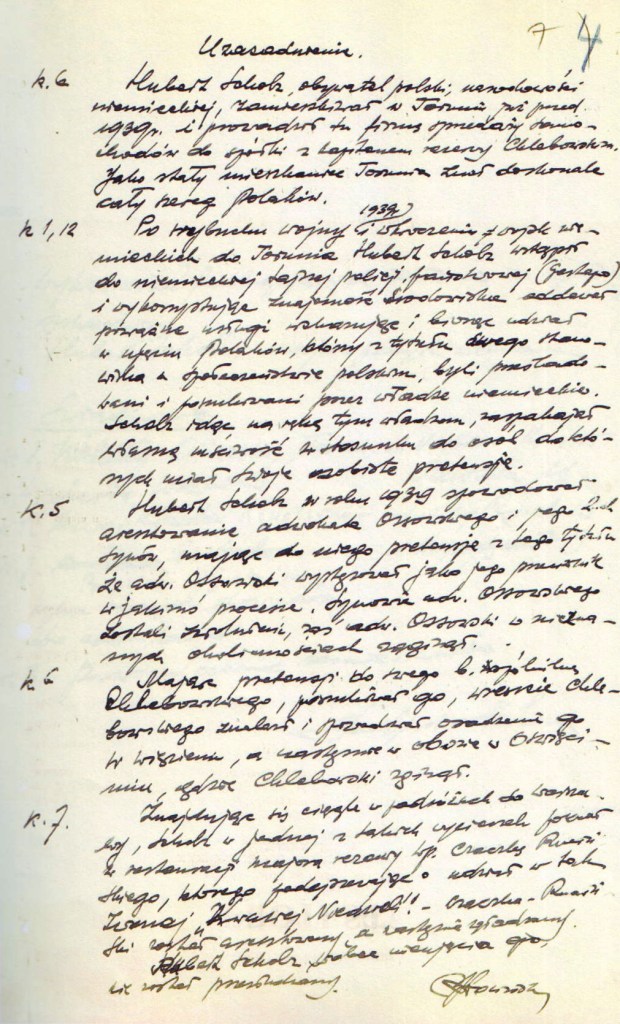 7 4
Uzasadnienie.
k. 6 Hubert Scholz, obywatel polski, narodowości
niemieckiej, zamieszkiwał w Toruniu już przed
1939 r. i prowadził tu firmę sprzedaży samo-
chodów do spółki z kapitanem rezerwy Chlebowskim.
Jako stały mieszkaniec Torunia znał doskonale
cały szereg Polaków.
k 1, 12 Po wybuchu wojny 1939 r. i wkroczeniu wojsk nie-
mieckich do Torunia Hubert Scholz wstąpił
do niemieckiej tajnej policji państwowej (Gestapo)
i wykorzystując znajomość środowiska oddawał
usługi wskazując i biorąc udział
w ujęciu Polaków, którzy z tytułu swego stano-
wiska w społeczeństwie polskim, byli prześlado-
wani i poszukiwani przez władze niemieckie.
Scholz idąc na rękę tym władzom, zaspakajał
własną mściwość w stosunku do osób do któ-
rych miał swoje osobiste pretensje.
K. 5 Hubert Scholz w roku 1939 spowodował
aresztowanie adwokata Ossowskiego i jego 2-ch
synów, mając do niego pretensję z tego tytułu
że adw. Ossowski występował jako jego przeciwnik
w jakimś procesie. Synowie adw. Ossowskiego
zostali zwolnieni, zaś adw. Ossowski w niezna-
nych okolicznościach zaginął.
k 6 Mając pretensji do swego b. wspólnika
Chlebowskiego, poszukiwał go, wreszcie Chle-
bowskiego znalazł i spowodował osadzenie go
w więzieniu, a następnie w obozie w Oświęci-
miu, gdzie Chlebowski zginął.
k. 7. Znajdując się ciągle w podróżach do Warsza-
wy, Scholz w jednej z takich wycieczek poznał
w restauracji majora rezerwy W.P.
skiego, którego podejrzewając o udział w tak
zwanej "Krwawej Niedzieli" -
ski został aresztowany a następnie zgładzony.
Hubert Scholz wobec nieujęcia go,
nie został przesłuchany.